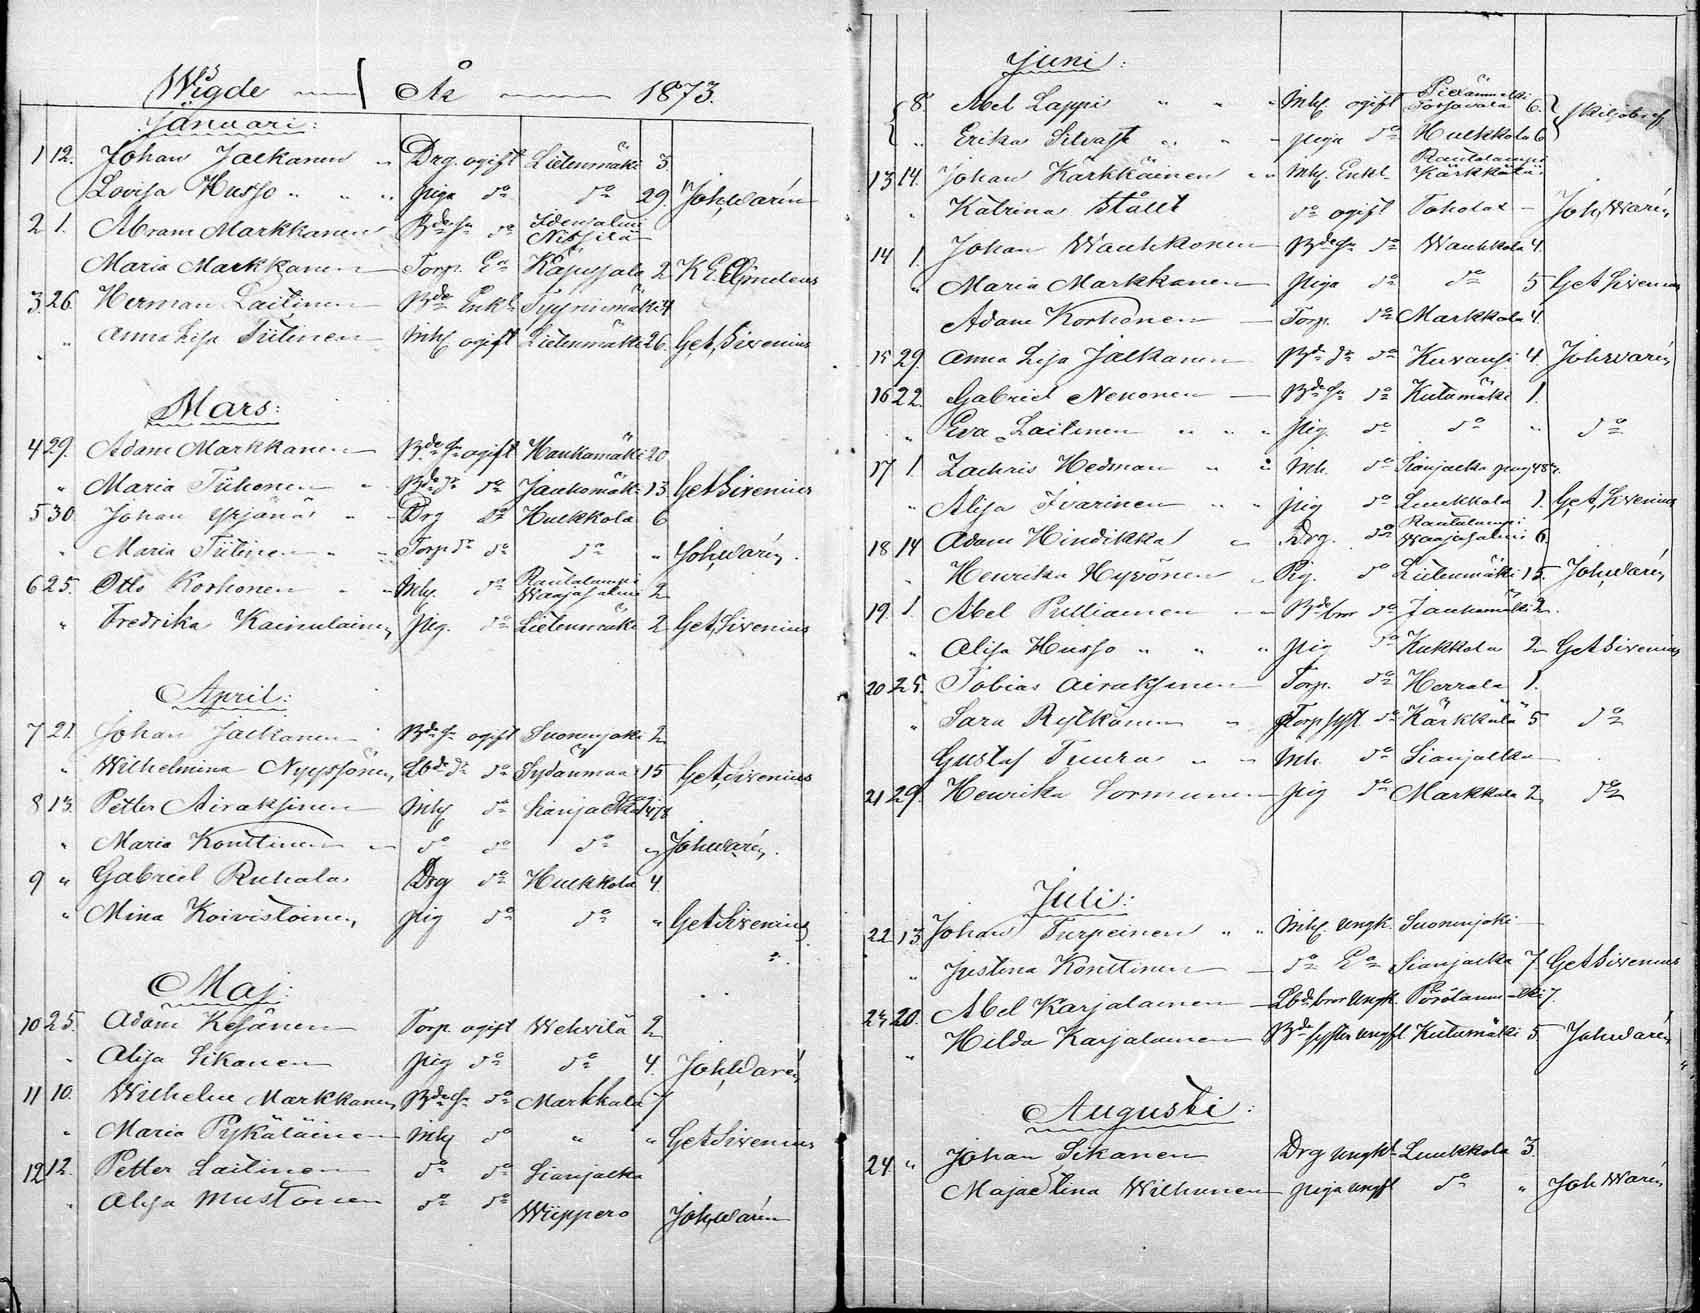 Wigde År 1873.
Januari:
1 12. Johan Jalkanen " Drg. ogift Lietenmäki 3
Lovisa Husso " " " piga do do 29 Joh. Warén
2 1. Abram Markkanen Bde sn do Idensalmi Nissilä
Maria Markkanen Torp. Ea Käpysjala 2 K. E.
3 26 Herman Laitinen Bde Enkl. Tyyrinmäki 4
" " Anna Lisa Tiitinen Inh. ogift Lietenmäki 26. G. et A. Sirenius
Mars:
4 29. Adam Markkanen Bde sn ogift Haukamäki 20
" Maria Tiihonen " Bde dr do Jauhomäki 13 G et A Sirenius
5 30. Johan Yrjänäs " " Drg do Hulkkola 6
" Maria Tiitinen " " Torp dr do do " Joh. Warén.
6 25. Otto Korhonen " " Inhy. do Rautalampi Waajasalmi 2
" Fredrika Kainulainen Pig. do Lietenmäki 2 G et A Sirenius
April:
7 21. Johan Jalkanen " Bde sn ogift Suonenjoki 2
" Wilhelmina Nyyssönen Lbde dr do Sydänmaa 15 G et A Sirenius
8 13 Petter Airaksinen Inhy do Sianjalka
" Maria Konttinen " do do do " Joh Warén.
9 " Gabriel Ruhala Drg do Hulkkola 4.
" Mina Koivistoinen pig do do " G et A Sirenius
Maj:
10 25. Adam Kesänen Torp ogift Wehvilä 2
" Alisa Sikanen pig do do 4. Joh. Warén
11 10. Wilhelm Markkanen Bde sn do Markkala 7
" Maria Pykäläinen Inhy do " " G et A Sirenius
12 12. Petter Laitinen do do Sianjalka
" Alisa Mustonen do do Wiippero Joh. Warén
Juni:
8 Abel Lappi " " " Inhy ogift 6.
" Erika Silvast " " " piga do Hulkkola 6
13 14. Johan Kärkkäinen " " Inhy. Enkl. Rautalampi Kärkkälä
" Katrina Ståhlt do ogift Toholax – Joh. Warén
14 1. Johan Wauhkonen Bde sn do Wauhkola 4.
" Maria Markkanen piga do do 5 G et A Sirenius
Adam Korhonen Torp. do Markkala 4.
15 29. Anna Lisa Jalkanen Bde dr do Kuvansi 4 Joh Warén
16 22. Gabriel Nenonen Bde sn do Kutumäki 1.
" Eva Laitinen " " " Pig. do do " do
17 1. Zachris Hedman " " Inh. do Sianjalka
" Alisa Ivarinen " " pig do Luukkola 1. G et A Sirenius
18 14 Adam Hindikka " Drg. do Rautalampi Waajasalmi 6.
" Henrika Hyvönen " Pig. do Lietenmäki 15. Joh. Warén
19. 1. Abel Pulliainen " " Bde bror do Jauhomäki 2.
" Alisa Husso " " " pig do Kukkola 2 G et A Sirenius
20 25. Tobias Airaksinen Torp. do Herrala 1.
" Sara Rytkönen " Torp syst do Kärkkälä 5 do
Gustaf Tuura " " Inh. do Sianjalka
21 29. Henrika Sormunen pig do Markkala 2 do
Juli:
22 13 Johan Turpeinen " " Inhy ungk. Suonenjoki
" Justina Konttinen do Ea Sianjalka 7 G et A Sirenius
23 20. Abel Karjalainen Lbde bror ungk. 7.
" Hilda Karjalainen Bde syster ungfl Kutumäki 5 Joh Warén
Augusti:
24. " Johan Sikanen Drg ungk. Luukkola 3.
Maja Stina Wilhunen piga ungfl do " Joh Warén